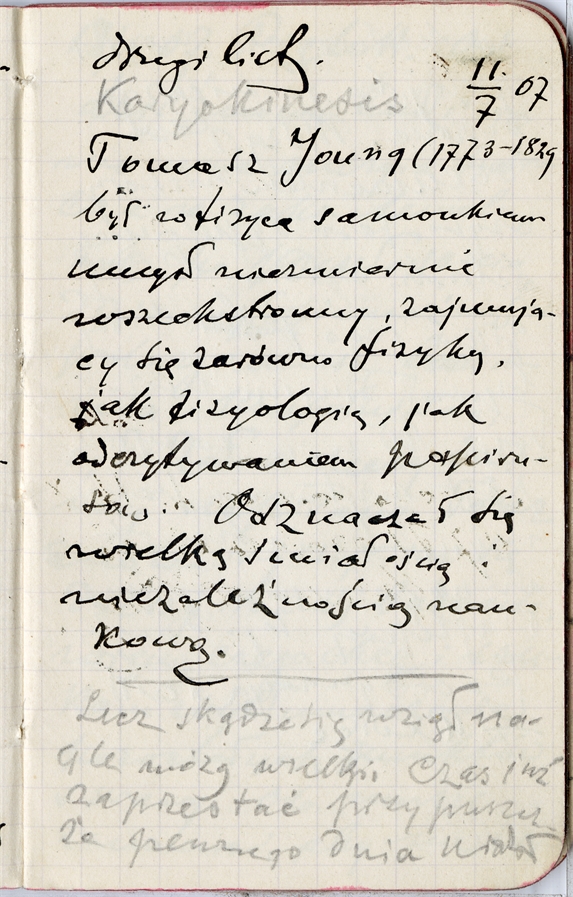 drugi list.
Karyokinesis
11/7 07
Tomasz Young (1773–1829
był w fizyce samoukiem
umysł niezmiernie
wszechstronny, zajmują-
cy się zarówno fizyką,
jak fizyologią, jak
odczytywaniem papiru-
sów. Odznaczał się
wielką śmiałością i
niezależnością nau-
kową.
Lecz skądże się wziął na-
gle mózg wielki. Czas już
zaprzestać przypuszcz.
że pewnego dnia